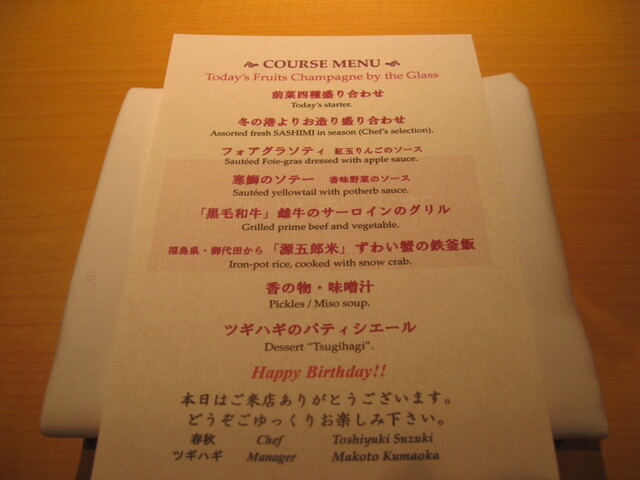 COURSE MENU
Today's Fruits Champagne by the Glass
前菜四種盛り合わせ
Today's starter.
冬の港よりお造り盛り合わせ
Assorted fresh SASHIMI in season (Chef's selection).
フォアグラソティ 紅玉りんごのソース
Sautéed Foie-gras dressed with apple sauce.
寒鰤のソテー 香味野菜のソース
Sautéed yellowtail with potherb sauce.
「黒毛和牛」雌牛のサーロインのグリル
Grilled prime beef and vegetable.
福島県・御代田から「源五郎米」ずわい蟹の鉄釜飯
Iron-pot rice, cooked with snow crab.
香の物・味噌汁
Pickles / Miso soup.
ツギハギのパティシエール
Dessert "Tsugihagi".
Happy Birthday!!
本日はご来店ありがとうございます。
どうぞごゆっくりお楽しみ下さい。
春秋 Chef Toshiyuki Suzuki
ツギハギ Manager Makoto Kumaoka